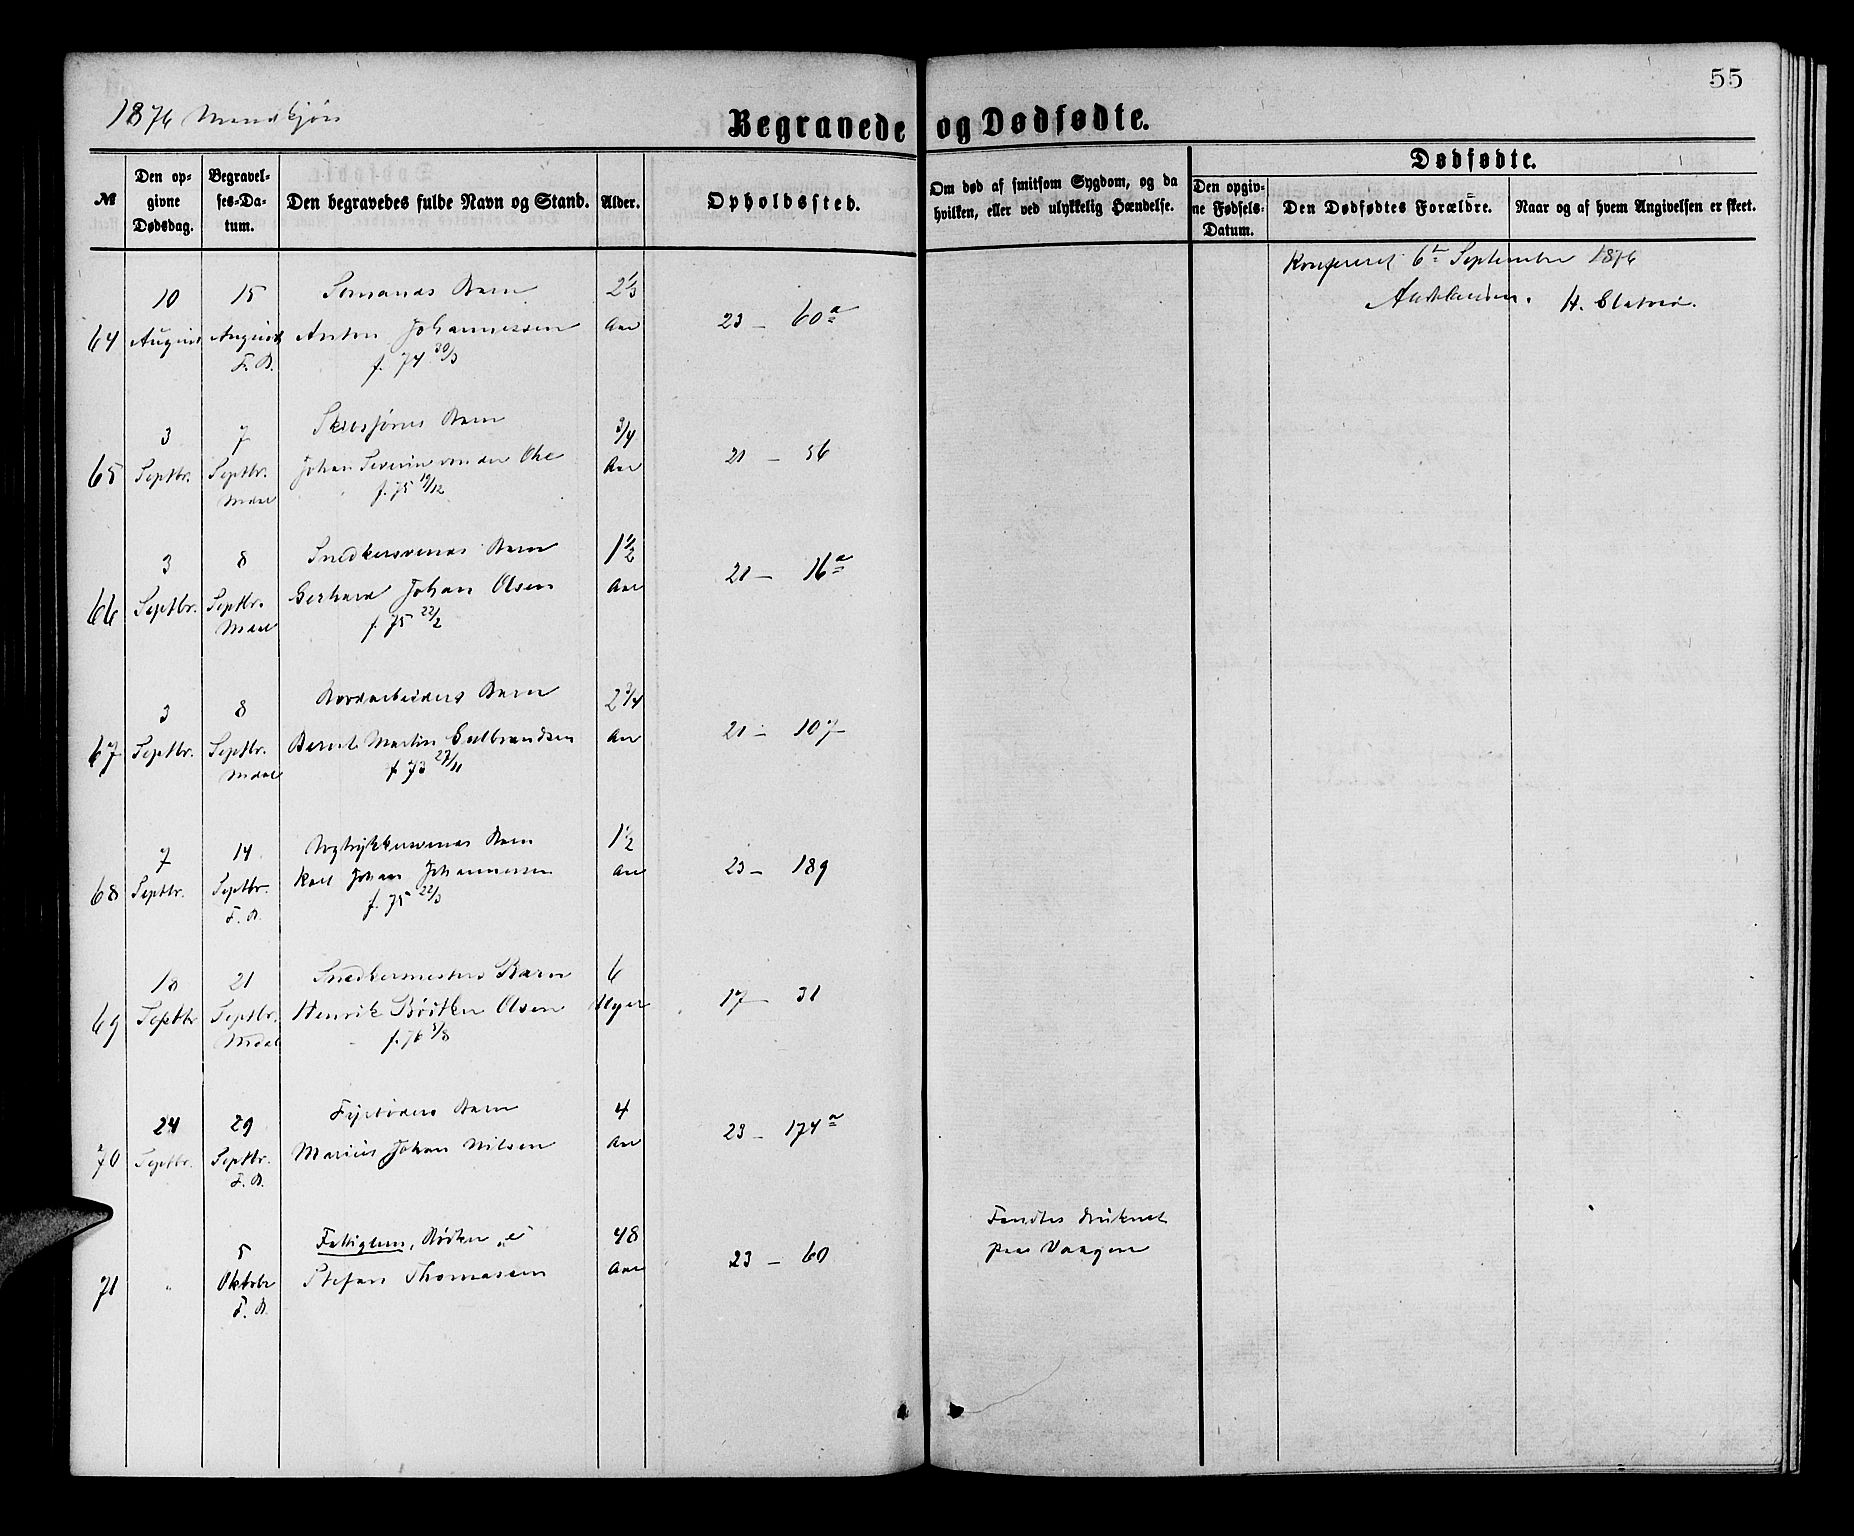 55
1876 Mandkjøn
Begravede og Dødfødte.
№
Den op-
givne
Dødsdag.
Begravel-
ses-Da-
tum.
Den begravedes fulde Navn og Stand.
Alder.
Opholdssted.
Om død af smitsom Sygdom, og da
hvilken, eller ved ulykkelig Hændelse.
Dødfødte.
Den opgiv-
ne Fødsels-
Datum.
Den Dødfødtes Forældre.
Naar og af hvem Angivelsen er skeet.
Konfereret 6te September 1876
H.
64
10
August
15
August
F. B.
Sømands Barn
Anton Johannessen
f. 74 30/3
2 1/3
Aar
23 — 60a
65
3
Septbr.
7
Septbr.
Mdal
Barn
Johan Severin von der Ohe
f. 75 19/12
3/4
Aar
21 — 56
66
3
Septbr.
8
Septbr.
Mdal
Snedkersvends Barn
Gerhard Johan Olsen
f. 75 22/2
1 1/2
Aar
21 — 16a
67
3
Septbr.
8
Septbr.
Mdal
Bordarbeiders Barn
Berent Martin Gulbrandsen
f. 73 27/11
2 3/4
Aar
21 — 107
68
7
Septbr.
14
Septbr.
F. B.
Bogtrykkersvends Barn
Karl Johan Johannessen
f. 75 22/3
1 1/2
Aar
23 — 189
69
18
Septbr
21
Septbr.
Mdal
Snedkermesters Barn
Henrik Bødtker Olsen
f. 76 5/8
6
Uger
17 — 31
70
24
Septbr.
29
Septbr.
F. B.
Fyrbøders Barn
Marius Johan Nilsen
4
Aar
23 — 174a
71
"
5
Oktobr
F. B.
Fattiglem, Bødker
Stefan Thomassen
48
Aar
23 — 60
Fandtes druknet
paa Vaagen